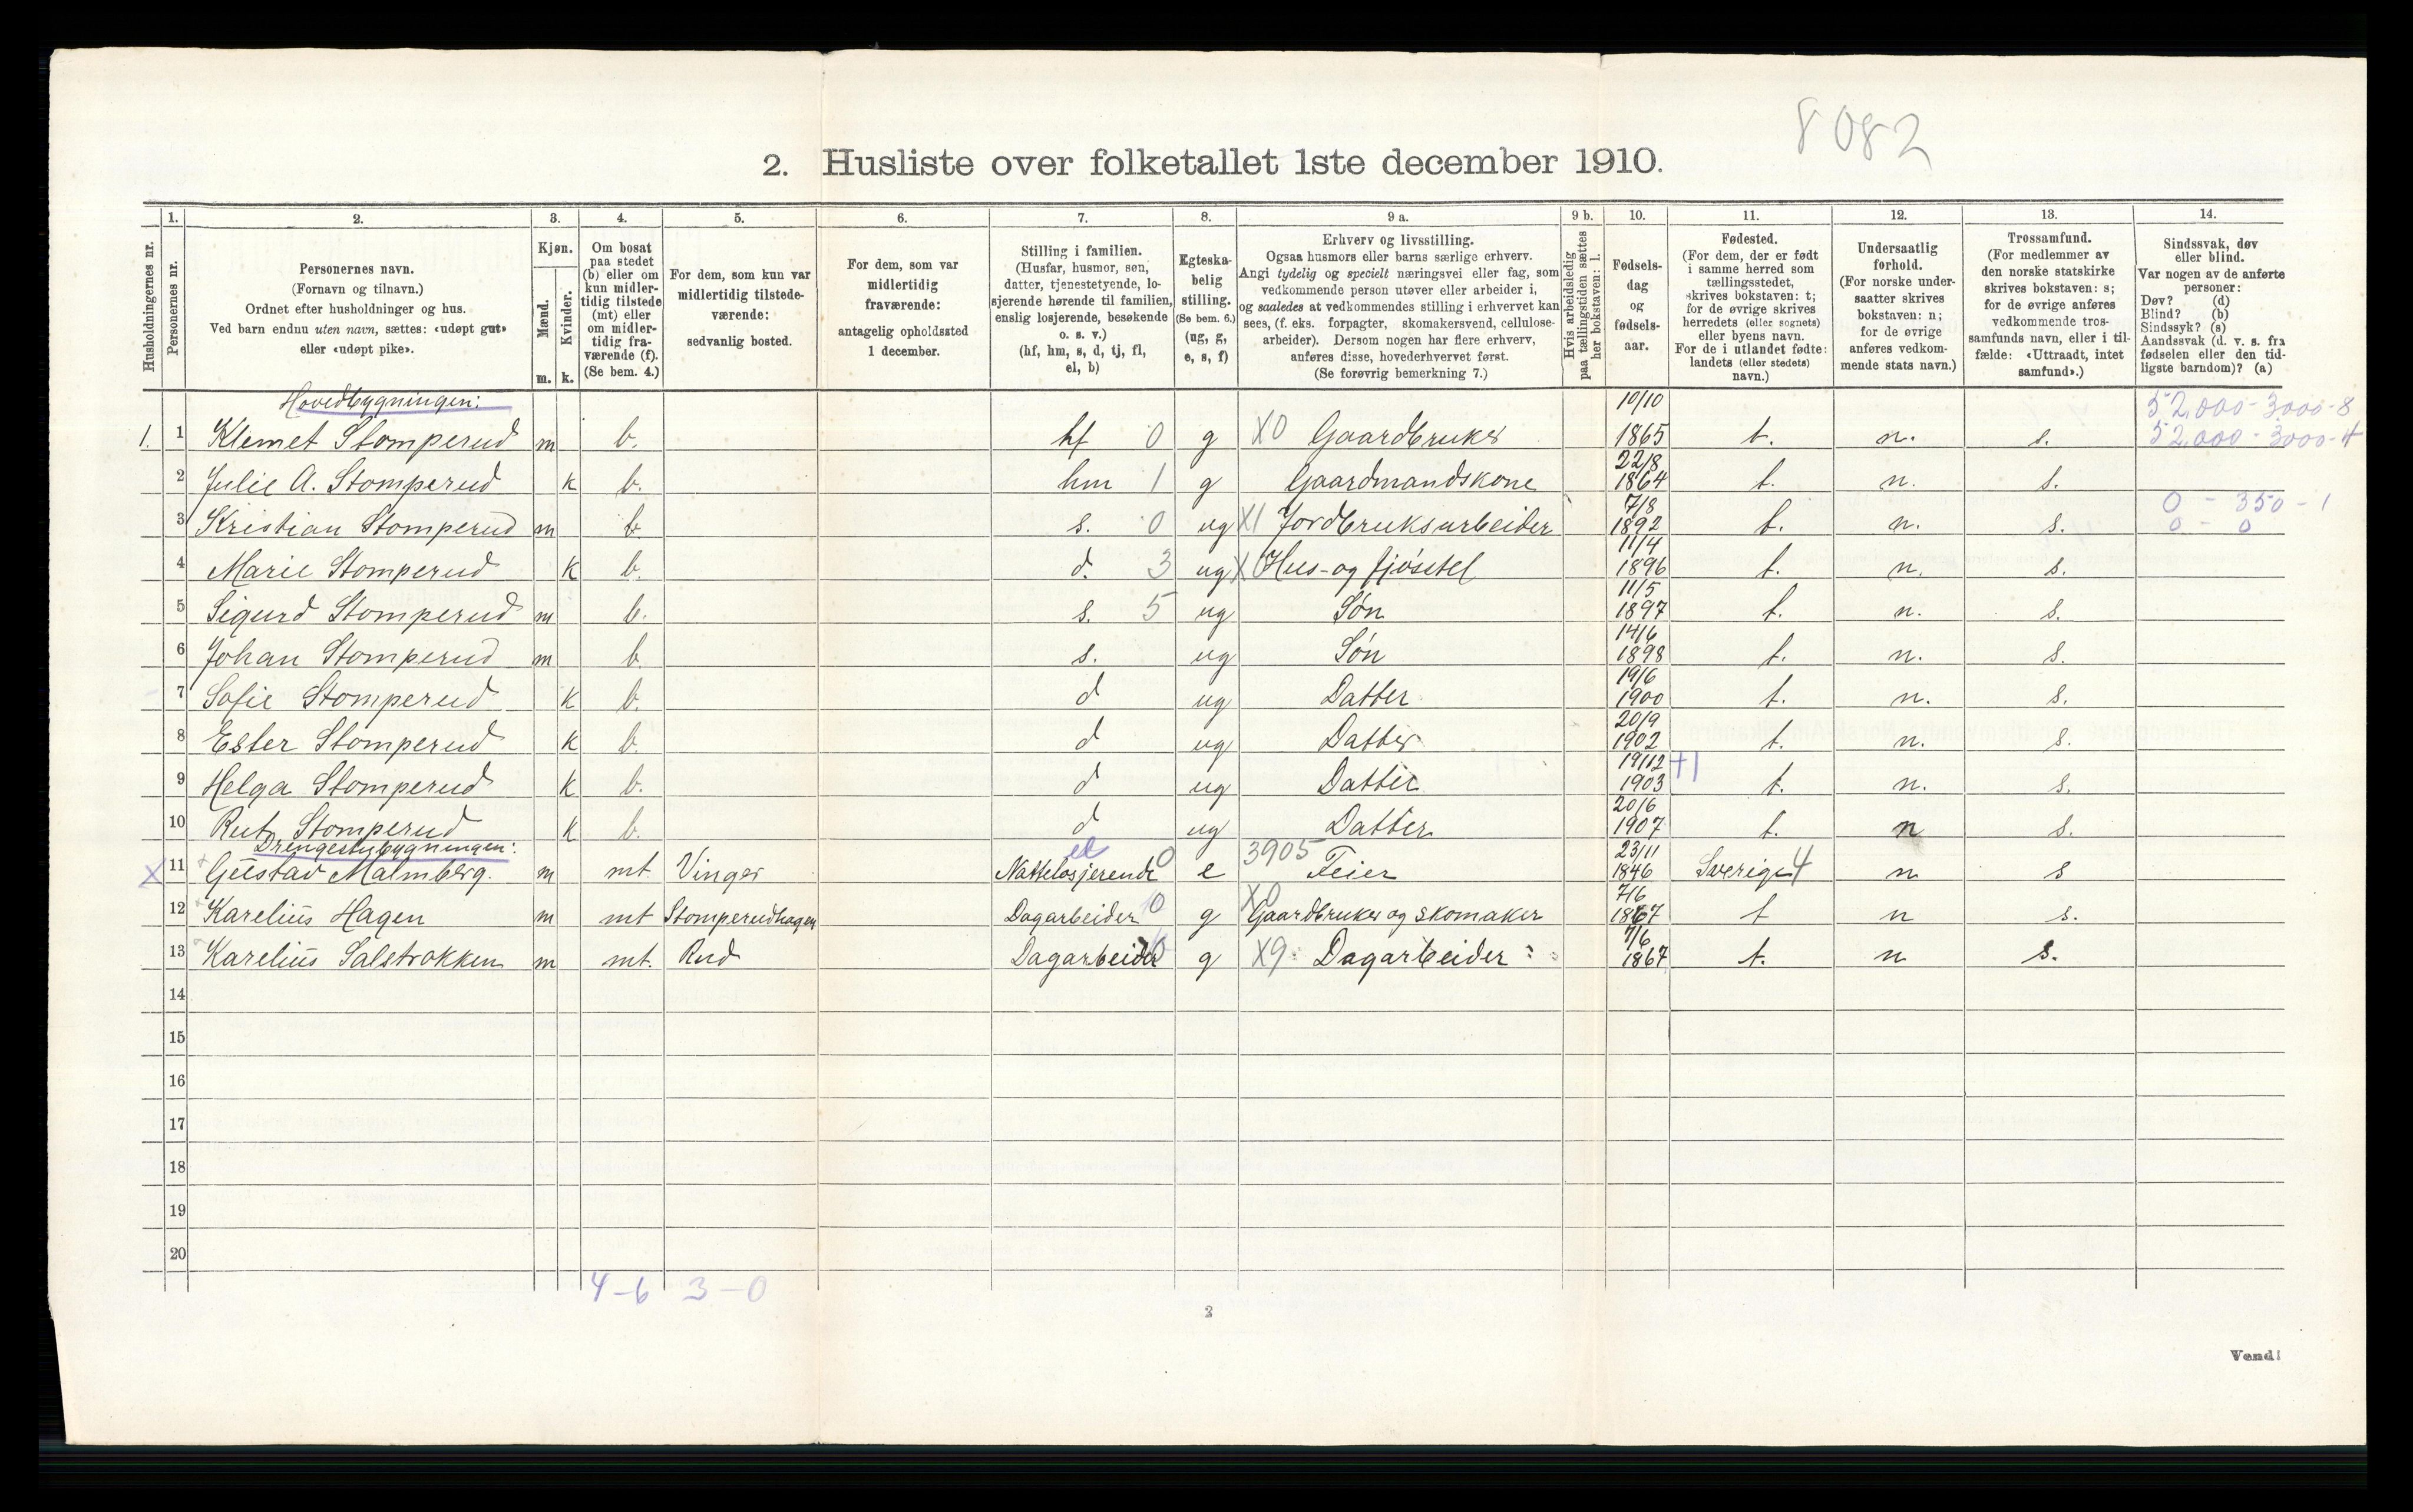 8082
2. Husliste over folketallet 1ste december 1910.
Husholdningernes nr.
1.
Personernes nr.
2.
Personernes navn.
(Fornavn og tilnavn.)
Ordnet efter husholdninger og hus.
Ved barn endnu uten navn, sættes: «udøpt gut»
eller «udøpt pike».
3.
Kjøn.
Mænd.
Kvinder.
m. k.
4.
Om bosat
paa stedet
(b) eller om
kun midler-
tidig tilstede
(mt) eller
om midler-
tidig fra-
værende (f).
(Se bem. 4.)
5.
For dem, som kun var
midlertidig tilstede-
værende:
sedvanlig bosted.
6.
For dem, som var
midlertidig
fraværende:
antagelig opholdssted
1 december.
7.
Stilling i familien.
(Husfar, husmor, søn,
datter, tjenestetyende, lo-
sjerende hørende til familien,
enslig losjerende, besøkende
o. s. v.)
(hf, hm, s, d, tj, fl,
el, b)
8.
Egteska-
belig
stilling.
(Se bem. 6.)
(ug, g,
e, s, f)
9 a.
Erhverv og livsstilling.
Ogsaa husmors eller barns særlige erhverv.
Angi tydelig og specielt næringsvei eller fag, som
vedkommende person utøver eller arbeider i,
og saaledes at vedkommendes stilling i erhvervet kan
sees, (f. eks. forpagter, skomakersvend, cellulose-
arbeider). Dersom nogen har flere erhverv,
anføres disse, hovederhvervet først.
(Se forøvrig bemerkning 7.)
9 b.
Hvis arbeidsledig
paa tællingstiden sættes
her bokstaven: l.
10.
Fødsels-
dag
og
fødsels-
aar.
11.
Fødested.
(For dem, der er født
i samme herred som
tællingsstedet,
skrives bokstaven: t;
for de øvrige skrives
herredets (eller sognets)
eller byens navn.
For de i utlandet fødte:
landets (eller stedets)
navn.)
12.
Undersaatlig
forhold.
(For norske under-
saatter skrives
bokstaven: n;
for de øvrige
anføres vedkom-
mende stats navn.)
13.
Trossamfund.
(For medlemmer av
den norske statskirke
skrives bokstaven: s;
for de øvrige anføres
vedkommende tros-
samfunds navn, eller i til-
fælde: «Uttraadt, intet
samfund».)
14.
Sindssvak, døv
eller blind.
Var nogen av de anførte
personer:
Døv? (d)
Blind? (b)
Sindssyk? (s)
Aandssvak (d. v. s. fra
fødselen eller den tid-
ligste barndom)? (a)
Hovedbygningen:
1. 1 Klemet Stomperud m b. hf 0 g X0 Gaardbruker 10/10 1865 t. n. s. 52,000-3000-8 52,000-3000-4
2 Julie A. Stomperud k b. hm 1 g Gaardmandskone 22/8 1864 t. n. s.
3 Kristian Stomperud m b s. 0 ug X1 Jordbruksarbeider 7/8 1892 t. n. s. 0 - 350 - 1 0 - 0
4 Marie Stomperud k b. d. 3 ug X Hus- og fjøsstel 11/4 1896 t. n. s.
5 Sigurd Stomperud m b. s. 5 ug Søn 11/5 1897 t. n. s.
6 Johan Stomperud m b. s. ug Søn 14/6 1898 t. n. s.
7 Sofie Stomperud k b. d ug Datter 19/6 1900 t. n. s.
8 Ester Stomperud k b. d ug Datter 20/9 1902 t. n. s.
9 Helga Stomperud k b. d ug Datter 19/12 1903 +1 t. n. s.
10 Rut Stomperud k b. d ug Datter 20/6 1907 t. n s.
Drengestubygningen:
X 11 Gustav Malmberg. m mt Vinger Natteløsjerende el 0 e 3905 Feier 23/11 1846 Sverige 4 n s
12 Karelius Hagen m mt Stomperudhagen Dagarbeider 0 g X0 Gaardbruker og skomaker 7/6 1867 t n s.
13 Karelius Galstrokken m mt. Rud Dagarbeider 0 g X9 Dagarbeider 7/6 1867 t. n s.
14
15
16
17
18
19
20
4-6 3-0
2
Vend!